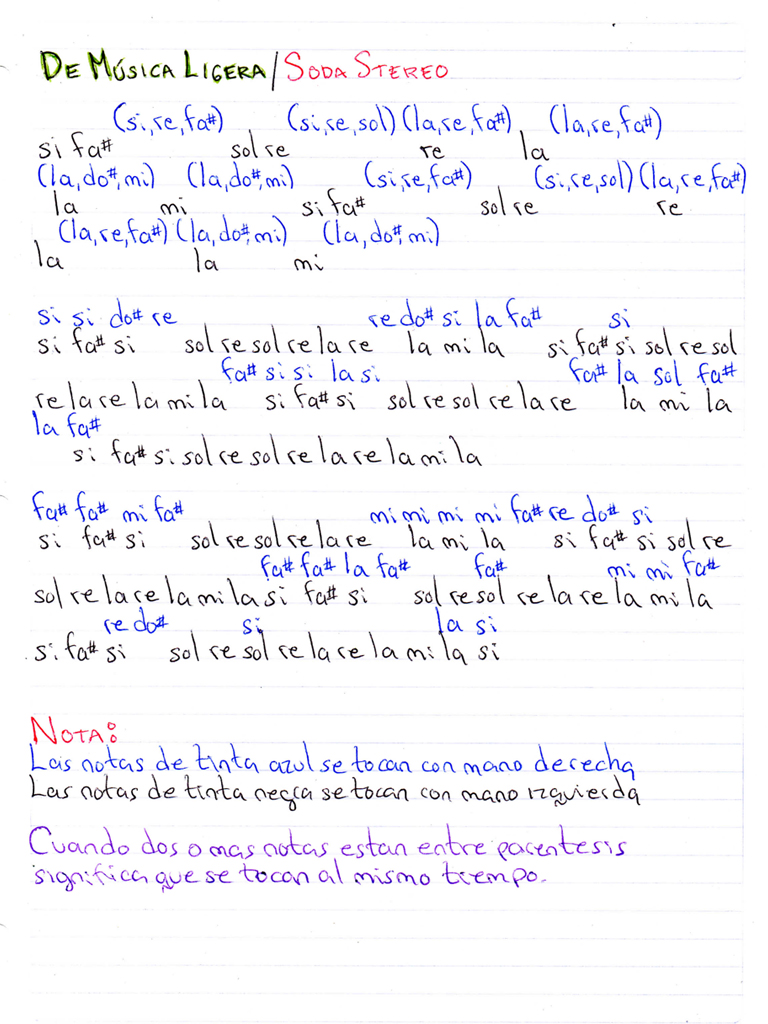 DE MÚSICA LIGERA/SODA STEREO
(si,re,fa#) (si,re,sol)(la,re,fa#) (la,re,fa#)
si fa# sol re re la
(la,do#,mi) (la,do#,mi) (si,re,fa#) (si,re,sol)(la,re,fa#)
la mi si fa# sol re re
(la,re,fa#)(la,do#,mi) (la,do#,mi)
la la mi
si si do# re re do# si la fa# si
si fa# si sol re sol re la re la mi la si fa# si sol re sol
fa# si si la si fa# la sol fa#
re la re la mi la si fa# si sol re sol re la re la mi la
la fa#
si fa# si sol re sol re la re la mi la
fa# fa# mi fa# mi mi mi mi fa# re do# si
si fa# si sol re sol re la re la mi la si fa# si sol re
fa# fa# la fa# fa# mi mi fa#
sol re la re la mi la si fa# si sol re sol re la re la mi la
re do# si la si
si fa# si sol re sol re la re la mi la si
NOTA:
Las notas de tinta azul se tocan con mano derecha
Las notas de tinta negra se tocan con mano izquierda
Cuando dos o mas notas estan entre parentesis
significa que se tocan al mismo tiempo.